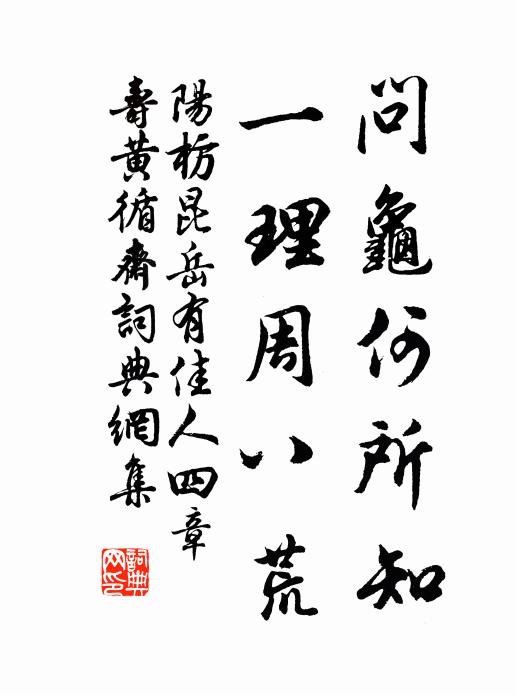 問龜何所知
一理周八荒
陽枋昆岳有佳人四章
壽黃循齋詞典網集
詞典网印